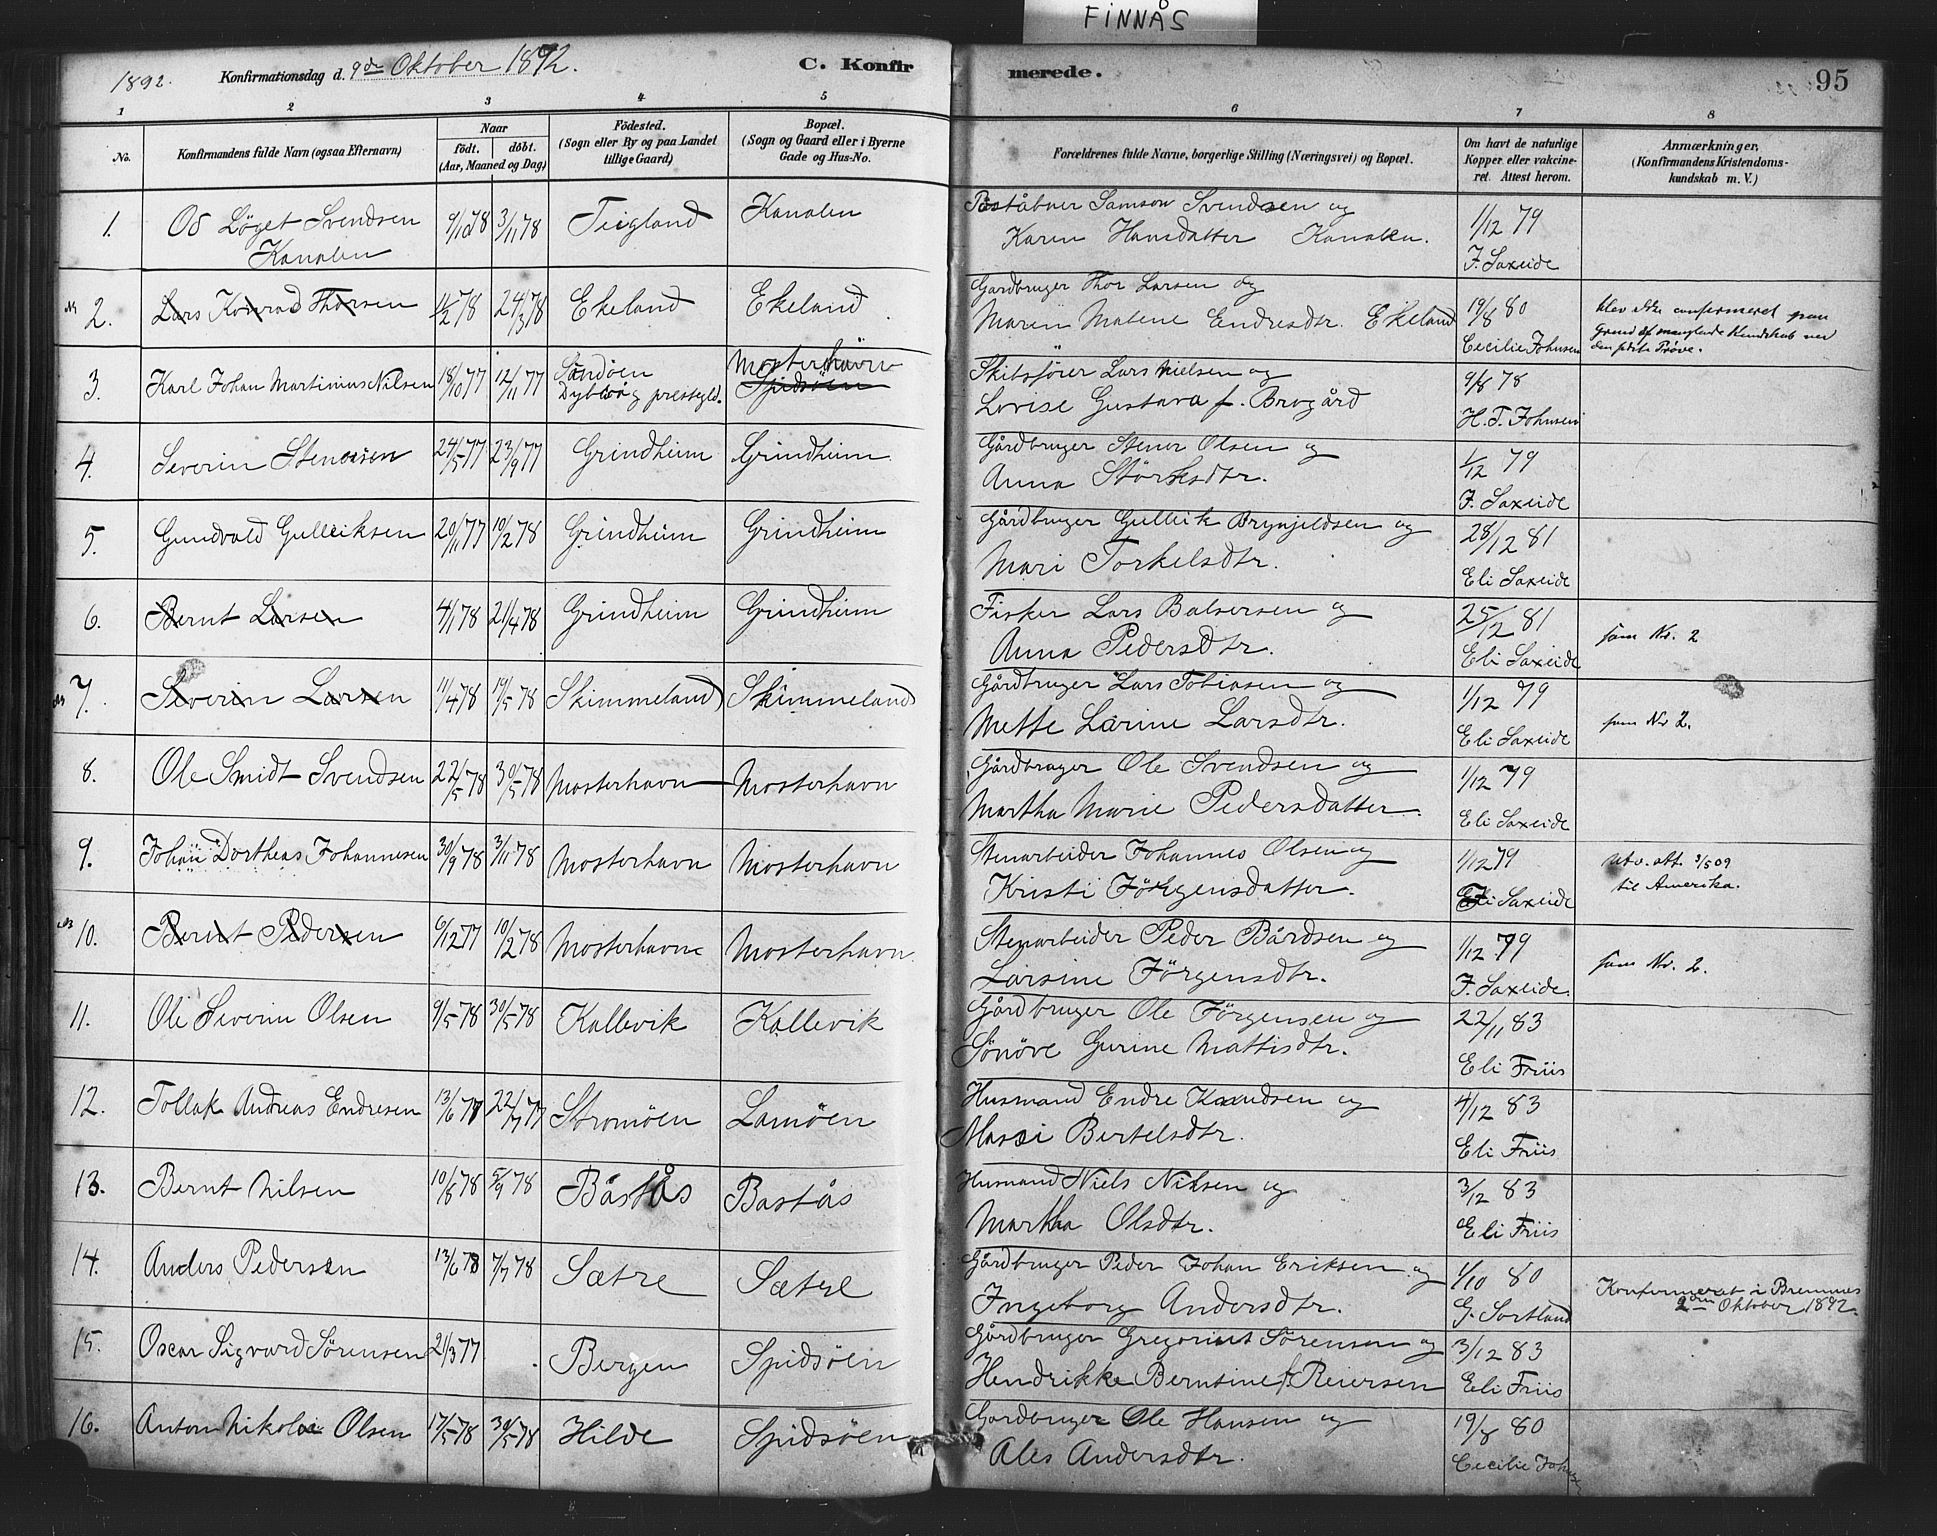 FINNÅS
1892. Konfirmationsdag d. 9de Oktober 1892. C. Konfirmerede. 95
1 2 3 4 5 6 7 8
No.
Konfirmandens fulde Navn (ogsaa Efternavn)
Naar
födt. döbt.
(Aar, Maaned og Dag)
Födested.
(Sogn eller By og paa Landet
tillige Gaard)
Bopæl.
(Sogn og Gaard eller i Byerne
Gade og Hus-No.
Forældrenes fulde Navne, borgerlige Stilling (Næringsvei) og Bopæl.
Om havt de naturlige
Kopper eller vakcine-
ret. Attest herom.
Anmærkninger,
(Konfirmandens Kristendoms-
kundskab m. V.)
1. Od Löget Svendsen 9/10 78 3/11 78 Teigland Kanalen Poståbner Samson Svendsen og 1/12 79
Kanalen Karen Hansdatter Kanalen. F. Saxeide
2. Lars Konrad Thorsen 11/2 78 24/3 78 Ekeland Ekeland Gardbruger Thor Larsen og 19/8 80 blev ikke confirmeret paa
Maren Malene Endresdtr. Ekeland Cecilie Johnsen Grund af manglende Kundskab ved
den sidste Prøve.
3. Karl Johan Martinius Nilsen 18/10 77 12/11 77 Sandöen Mosterhavn Skibsfører Lars Nielsen og 9/8 78
Dybvåg prestgld. Spidsöen Lovise Gustava f. Brogård H. T. Johnsen
4. Severin Stenersen 24/5 77 23/9 77 Grindheim Grindheim Gårdbruger Stener Olsen og 1/12 79
Anna Störkesdtr. F. Saxeide
5. Gundvald Gulleiksen 20/11 77 10/2 78 Grindheim Grindheim Gårdbruger Gulleik Brynjeldsen og 28/12 81
Mari Torkelsdtr. Eli Saxeide
6. Bernt Larsen 4/1 78 21/4 78 Grindheim Grindheim Fisker Lars Balsersen og 25/12 81 som Nr. 2
Anna Pedersdtr. Eli Saxeide
7. Severin Larsen 11/4 78 19/5 78 Skimmeland Skimmeland Gårdbruger Lars Tobiasen og 1/12 79 som Nr 2.
Mette Larine Larsdtr. Eli Saxeide
8. Ole Smidt Svendsen 22/5 78 30/5 78 Mosterhavn Mosterhavn Gårdbruger Ole Svendsen og 1/12 79
Martha Marie Pedersdatter. Eli Saxeide
9. Johan Dortheas Johannesen 30/9 78 3/11 78 Mosterhavn Mosterhavn Stenarbeider Johannes Olsen og 1/12 79 utv. att. 3/5 09
Kristi Jörgensdatter. Eli Saxeide til Amerika.
10. Bernt Pedersen 6/12 77 10/2 78 Mosterhavn Mosterhavn. Stenarbeider Peder Bårdsen og 1/12 79 som Nr. 2.
Larsine Jörgensdtr. F. Saxeide.
11. Ole Severin Olsen 9/5 78 30/5 78 Kallevik Kallevik Gårdbruger Ole Jörgensen og 22/11 83
Sönöve Gurine Mattisdtr. Eli Friis
12. Tollak Andreas Endresen 13/6 77 22/7 77 Stromöen Lamöen Husmand Endre Knudsen og 4/12 83
Massi Bertelsdtr. Eli Friis
13. Bernt Nilsen 10/8 78 5/9 78 Båstås Bastås Husmand Niels Nilsen og 3/12 83
Martha Olsdtr. Eli Friis
14. Anders Pedersen 13/6 78 7/7 78 Sætre Sætre Gårdbruger Peder Johan Eriksen og 1/10 80 Konfirmeret i Bremnes
Ingeborg Andersdtr. G. Sortland 2den Oktober 1892.
15. Oscar Sigvard Sörensen 21/3 77 Bergen Spidsöen Gårdbruger Gregorius Sörensen og 3/12 83
Hendrikke Berntine f. Reiersen Eli Friis
16. Anton Nikolai Olsen 17/5 78 30/5 78 Hilde Spidsöen Gardbruger Ole Hansen og 19/8 80
Ales Andersdtr. Cecilie Johnsen